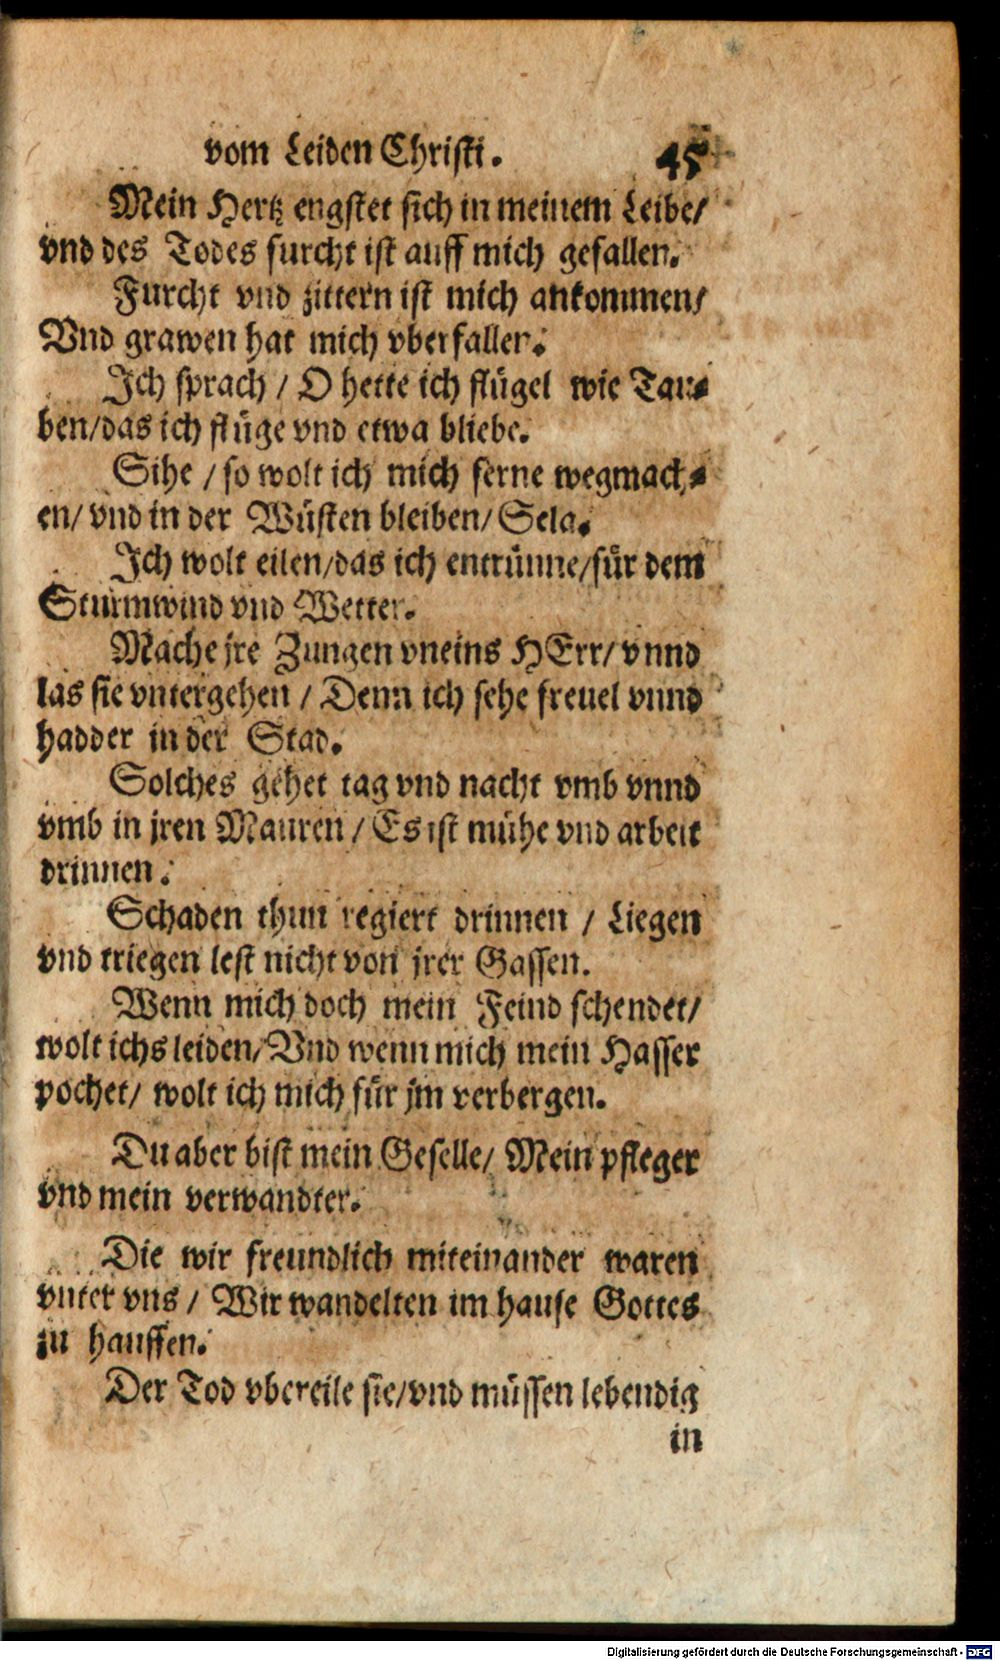 vom Leiden Christi. 45
Mein Hertz engstet sich in meinem Leibe/
vnd des Todes furcht ist auff mich gefallen.
Furcht vnd zittern ist mich ankommen/
Vnd grawen hat mich vberfallen.
Ich sprach / O hette ich flügel wie Tau⸗
ben/das ich flüge vnd etwa bliebe.
Sihe / so wolt ich mich ferne wegmach⸗
en/ vnd in der Wüsten bleiben/ Sela.
Ich wolt eilen/das ich entrünne/für dem
Sturmwind vnd Wetter.
Mache jre Zungen vneins HErr/ vnnd
las sie vntergehen / Denn ich sehe freuel vnnd
hadder in der Stad.
Solches gehet tag vnd nacht vmb vnnd
vmb in jren Mauren / Es ist mühe vnd arbeit
drinnen.
Schaden thun regiert drinnen / Liegen
vnd triegen lest nicht von jrer Gassen.
Wenn mich doch mein Feind schendet/
wolt ichs leiden/ Vnd wenn mich mein Hasser
pochet/ wolt ich mich für jm verbergen.
Du aber bist mein Geselle/ Mein pfleger
vnd mein verwandter.
Die wir freundlich miteinander waren
vnter vns / Wir wandelten im hause Gottes
zu hauffen.
Der Tod vbereile sie/vnd müssen lebendig
in
Digitalisierung gefördert durch die Deutsche Forschungsgemeinschaft - DFG